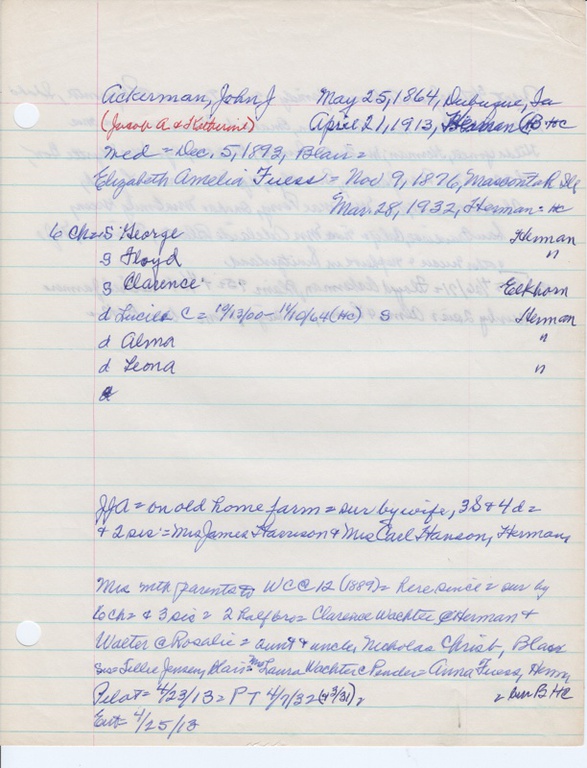 Ackerman, John J May 25, 1864, Dubuque, Ia
(Jacob A & Katherine) April 21, 1913, Herman (B HC
med = Dec, 5, 1893, Blair =
Elizabeth Amelia Fuess = Nov 9, 1876, R Ill
Mar. 28, 1932, Herman = HC
6 Ch = S George Herman
S Floyd "
S Clarence Elkhorn
d Lucile C = 10/13/00 - 11/10/64 (HC) S Herman
d Alma "
d Leona "
d
JJA = on old home farm = sur by wife, 3S & 4d =
& 2 sis = Mrs James Harrison & Mrs Carl Hanson, Herman,
Mrs with parents to WC @ 12 (1889) = here since = sur by
6 ch = & 3 sis = 2 half bro = Clarence Wachter @ Herman &
Walter @ Rosalie = aunt & uncle, Nicholas Christ, Blair
sis = Tillie Jensen, Blair = Mrs Laura Wachter @ Pender = Anna Fuess, Herm
Pilot = 4/23/13 = PT 4/7/32 (& 3/31) = = bur B HC
Ent = 4/25/13